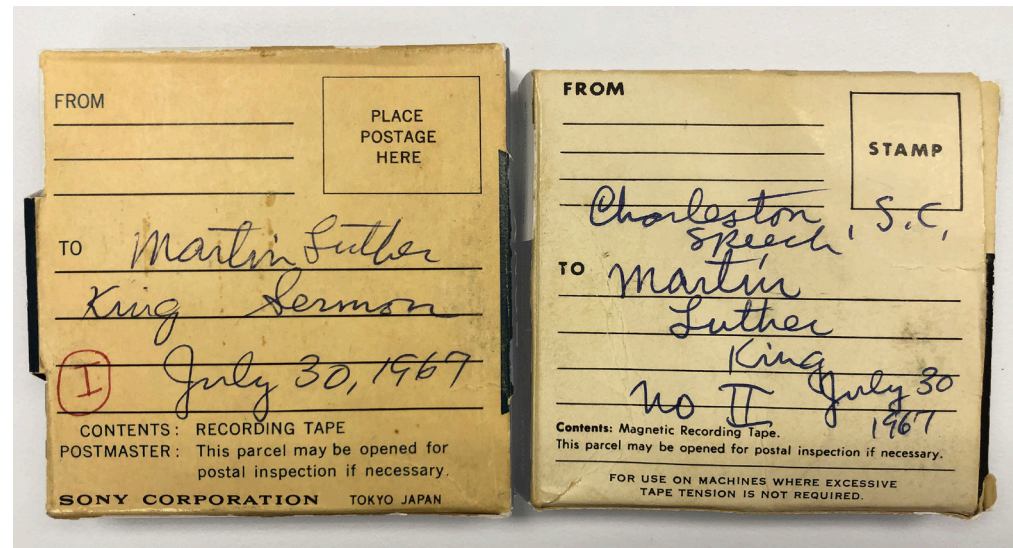 FROM
PLACE
POSTAGE
HERE
TO Martin Luther
King Sermon
I July 30, 1967
CONTENTS: RECORDING TAPE
POSTMASTER: This parcel may be opened for
postal inspection if necessary.
SONY CORPORATION TOKYO JAPAN
FROM
STAMP
Charleston, S.C,
Speech
TO Martin
Luther
King
No II July 30
1967
Contents: Magnetic Recording Tape.
This parcel may be opened for postal inspection if necessary.
FOR USE ON MACHINES WHERE EXCESSIVE
TAPE TENSION IS NOT REQUIRED.